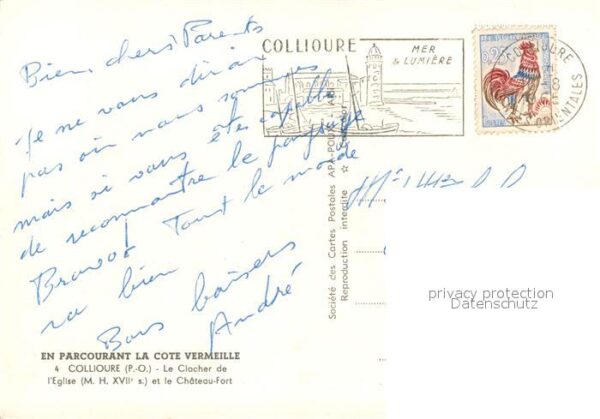 Bien chers Parents
Je ne vous dirai
pas où nous sommes
mais si vous êtes capable
de reconnaître le paysage
Bravo! Tout le monde
va bien
Bons baisers
André
COLLIOURE
MER
& LUMIÈRE
0,25
COLLIOURE
ORIENTALES
Société des Cartes Postales APA-POUX - 
Reproduction interdite ☆
privacy protection
Datenschutz
EN PARCOURANT LA COTE VERMEILLE
4 COLLIOURE (P.-O.) - Le Clocher de
l'Eglise (M. H. XVIIe s.) et le Château-Fort